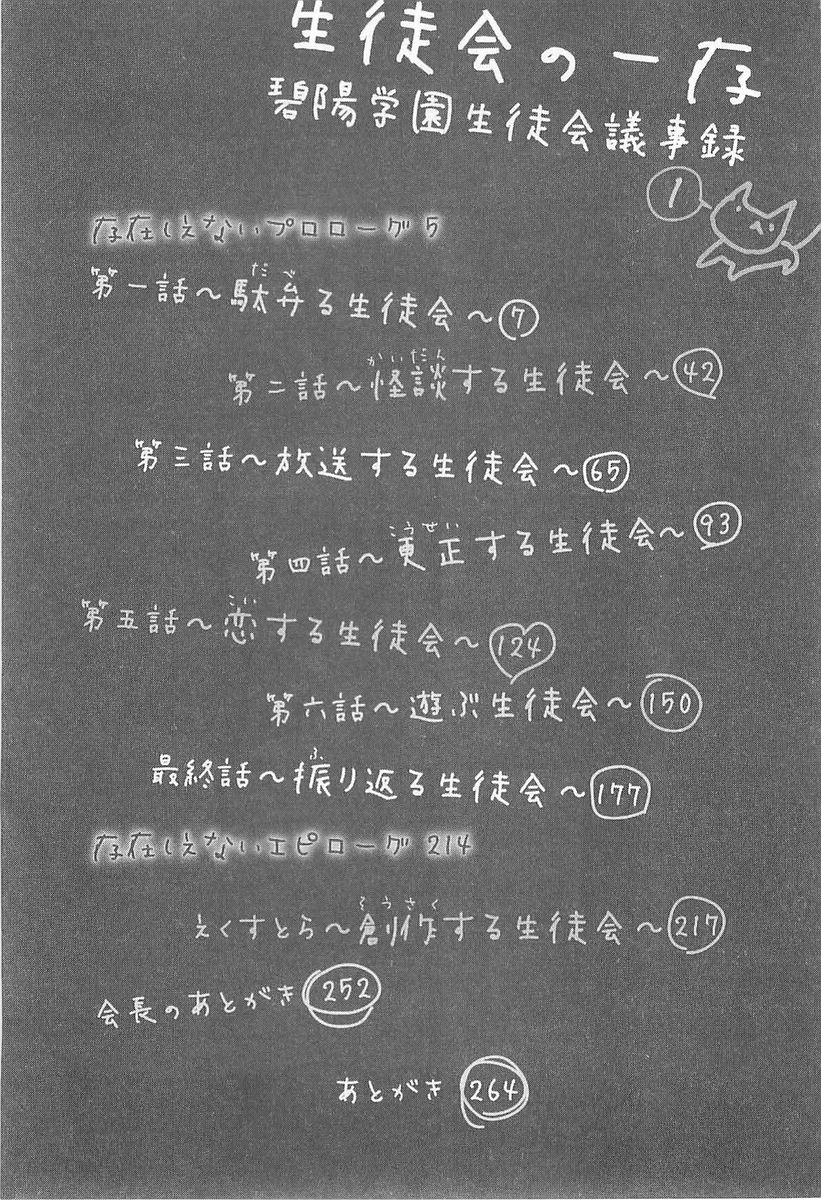 生徒会の一存
碧陽学園生徒会議事録
1
存在しえないプロローグ 5
第一話～駄弁る生徒会～ 7
第二話～怪談する生徒会～ 42
第三話～放送する生徒会～ 65
第四話～更正する生徒会～ 93
第五話～恋する生徒会～ 124
第六話～遊ぶ生徒会～ 150
最終話～振り返る生徒会～ 177
存在しえないエピローグ 214
えくすとら～創作する生徒会～ 217
会長のあとがき 252
あとがき 264